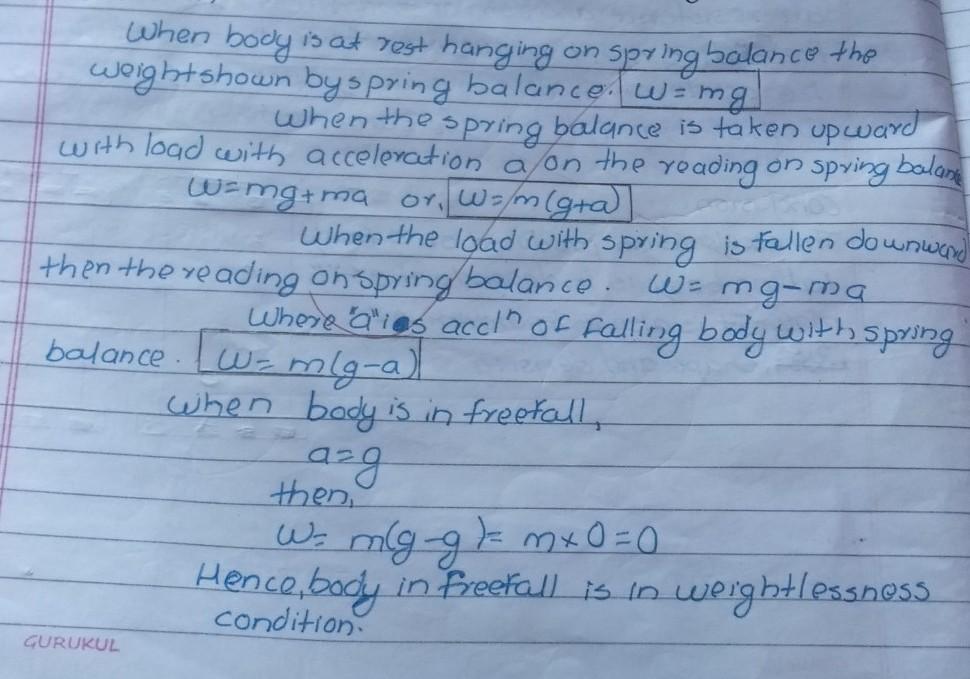 When body is at rest hanging on spring balance the
weight shown by spring balance. W = mg
When the spring balance is taken upward
with load with acceleration a on the reading on spring balance
W=mg+ma or, W=m(g+a)
When the load with spring is fallen downward
then the reading on spring balance. W= mg-ma
Where "a" is accln of falling body with spring
balance. W= m(g-a)
When body is in freefall,
a=g
then,
W= m(g-g)= m×0=0
Hence, body in freefall is in weightlessness
condition.
GURUKUL